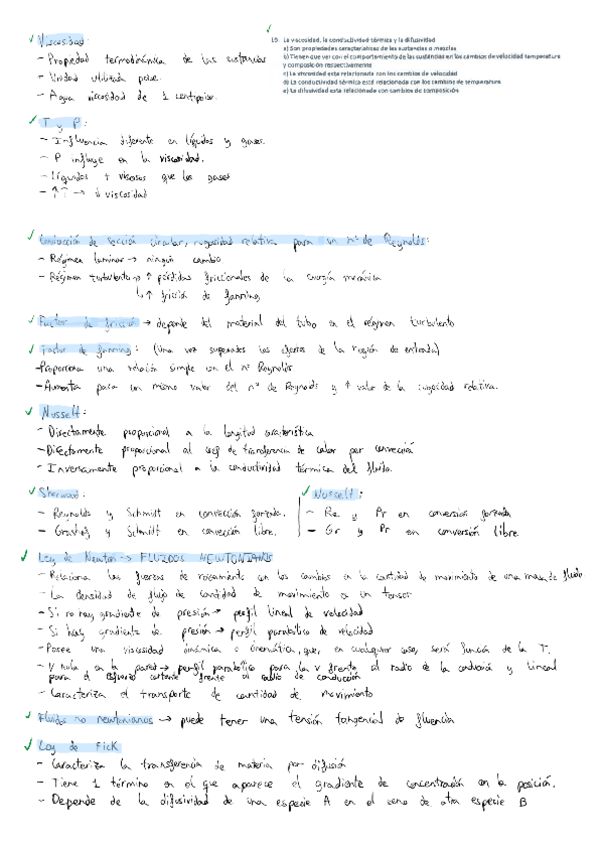 Viscosidad:
- Propiedad termodinámica de las sustancias
- Unidad utilizada poise.
- Agua viscosidad de 1 centipoise.
19. La viscosidad, la conductividad térmica y la difusividad
a) Son propiedades características de las sustancias o mezclas
b) Tienen que ver con el comportamiento de las sustancias en los cambios de velocidad temperatura
y composición respectivamente
c) La viscosidad está relacionada con los cambios de velocidad
d) La conductividad térmica está relacionada con los cambios de temperatura
e) La difusividad está relacionada con cambios de composición
T y P:
- Influencia diferente en líquidos y gases.
- P influye en la viscosidad.
- Líquidos + viscosos que los gases
- ↑T → ↓ viscosidad
Conducción de sección circular, rugosidad relativa para un nº de Reynolds:
- Régimen laminar → ningún cambio
- Régimen turbulento → ↑ pérdidas friccionales de la energía mecánica
↳ ↑ fricción de fanning
Factor de fricción → depende del material del tubo en el régimen turbulento
Factor de fanning: (Una vez superados los efectos de la región de entrada)
- Proporciona una relación simple con el nº Reynolds
- Aumenta para un mismo valor del nº de Reynolds y ↑ valor de la rugosidad relativa.
Nusselt:
- Directamente proporcional a la longitud característica
- Directamente proporcional al coef de transferencia de calor por convección
- Inversamente proporcional a la conductividad térmica del fluido.
Sherwood:
- Reynolds y Schmidt en convección forzada.
- Grashof y Schmidt en convección libre.
Nusselt:
- Re y Pr en conversión forzada
- Gr y Pr en conversión libre
Ley de Newton → FLUIDOS NEWTONIANOS
- Relaciona las fuerzas de rozamiento con los cambios en la cantidad de movimiento de una masa de fluido
- La densidad de flujo de cantidad de movimiento es un tensor
- Si no hay gradiente de presión → perfil lineal de velocidad
- Si hay gradiente de presión → perfil parabólico de velocidad
- Posee una viscosidad dinámica o cinemática, que, en cualquier caso, será función de la T.
- V nula en la pared → perfil parabólico para la v frente al radio de la conducción y lineal
para el esfuerzo cortante frente al radio de conducción
- Caracteriza el transporte de cantidad de movimiento
Fluidos no newtonianos → puede tener una tensión tangencial de fluencia
Ley de Fick
- Caracteriza la transferencia de materia por difusión
- Tiene 1 término en el que aparece el gradiente de concentración con la posición.
- Depende de la difusividad de una especie A en el seno de otra especie B